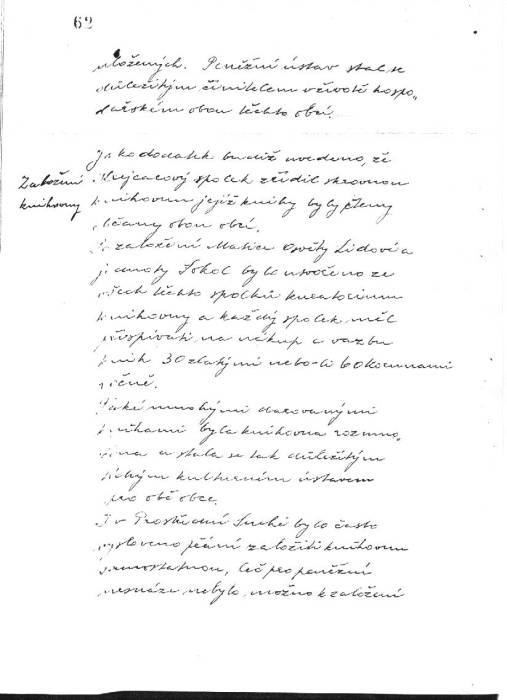 62
uložených. Peněžní ústav stal se
důležitým činitelem v životě hospo„
dářském obou těchto obcí.
Jako dodatek budiž uvedeno, že
Založení
spolek zřídil skrovnou
knihovny
knihovnu jejíž knihy byly čteny
občany obou obcí.
Po založení Matice Osvěty Lidové a
jednoty Sokol bylo utvořeno ze
všech těchto spolků kuratorium
knihovny a každý spolek měl
přispívati na nákup a vazbu
knih 30 zlatými nebo-li 60 Korunami
ročně.
Také mnohými darovanými
knihami byla knihovna rozmno„
žena a stala se tak důležitým
tichým kulturním ústavem
pro obě obce.
I v Prostřední Suché bylo často
vysloveno přání založiti knihovnu
samostatnou, leč pro peněžní
nesnáze nebylo možno k založení